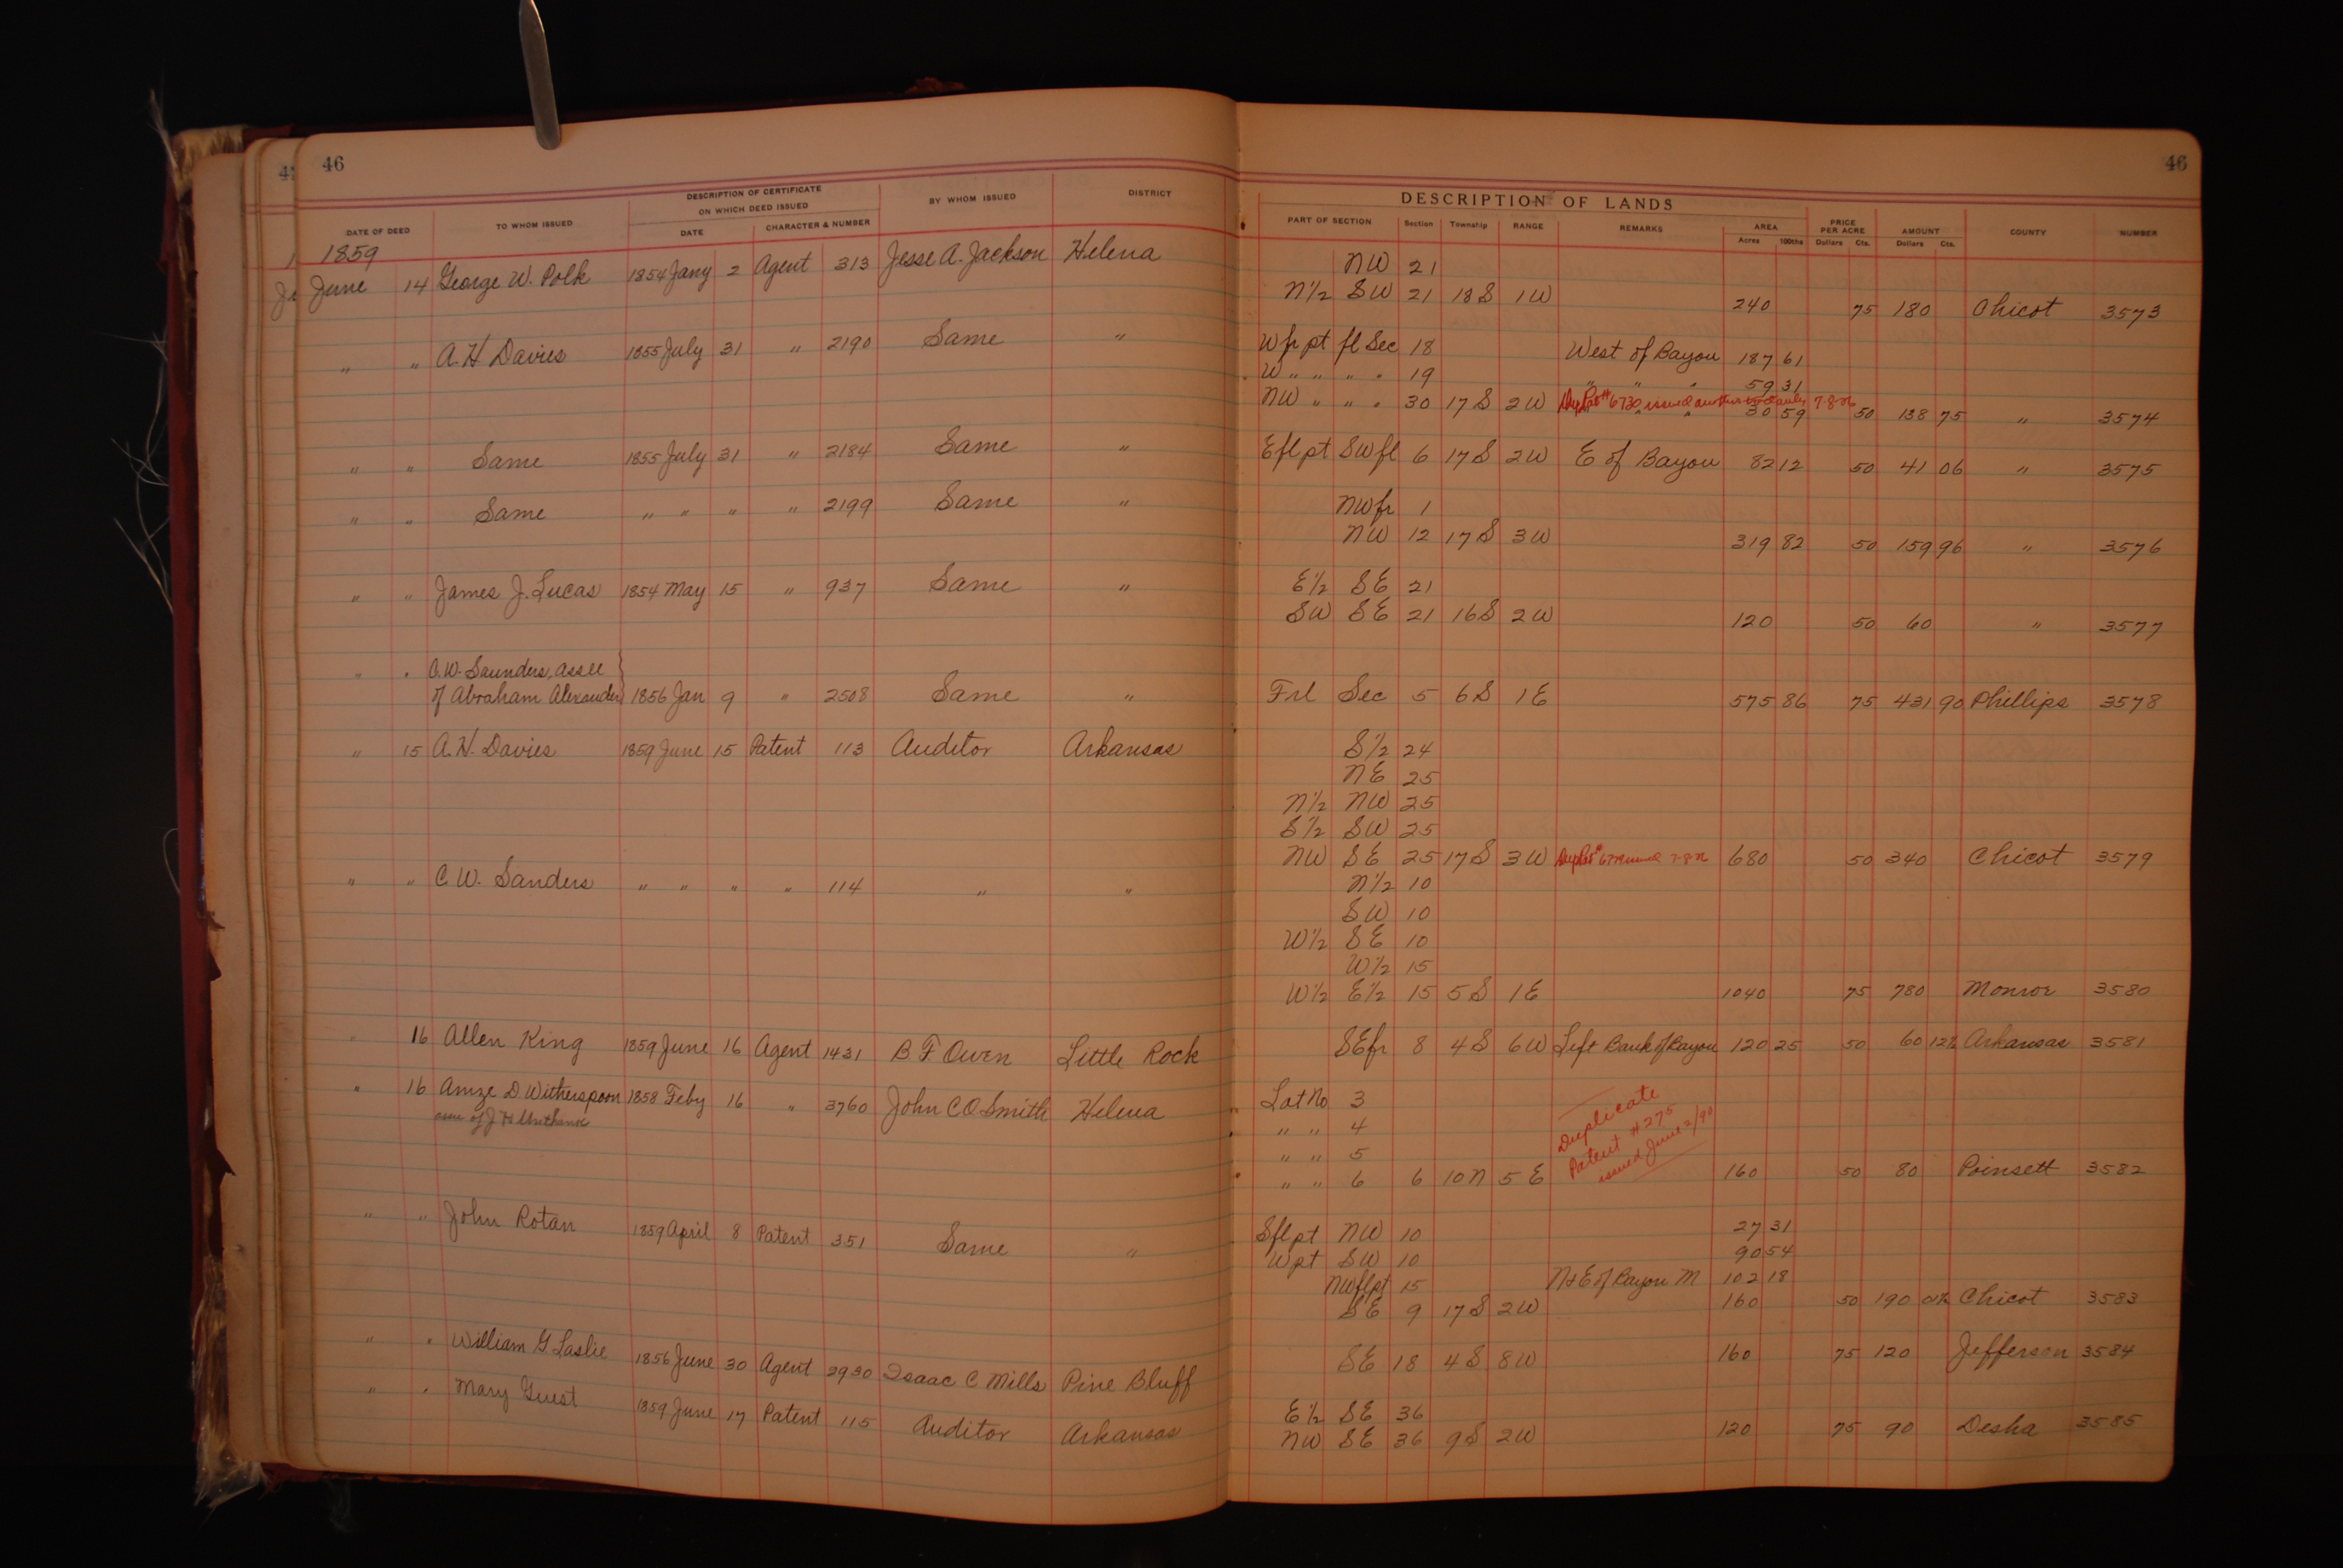 46
46
DESCRIPTION OF CERTIFICATE
ON WHICH DEED ISSUED
DATE OF DEED TO WHOM ISSUED DATE CHARACTER & NUMBER BY WHOM ISSUED DISTRICT
DESCRIPTION OF LANDS
PART OF SECTION Section Township RANGE REMARKS AREA PRICE PER ACRE AMOUNT COUNTY NUMBER
Acres 100ths Dollars Cts. Dollars Cts.
1859
NW 21
June 14 George W. Polk 1854 Jany 2 Agent 313 Jesse A. Jackson Helena N½ SW 21 18 S 1 W 240 75 180 Chicot 3573
" " A. H Davies 1855 July 31 " 2190 Same " W fr pt fl Sec 18 West of Bayou 187 61
W " " " " 19 " " " 59 31
NW " " " 30 17 S 2 W 30 59 50 138 75 " 3574
" " Same 1855 July 31 " 2184 Same " E fl pt SW fl 6 17 S 2 W E of Bayou 82 12 50 41 06 " 3575
" " Same " " " " 2199 Same " NW fr 1
NW 12 17 S 3 W 319 82 50 159 96 " 3576
" " James J. Lucas 1854 May 15 " 937 Same " E½ SE 21
SW SE 21 16 S 2 W 120 50 60 " 3577
" " C. W. Saunders, assee
of Abraham Alexander 1856 Jan 9 " 2508 Same " Frl Sec 5 6 S 1 E 575 86 75 431 90 Phillips 3578
" 15 A. H. Davies 1859 June 15 Patent 113 Auditor Arkansas S½ 24
NE 25
N½ NW 25
S½ SW 25
NW SE 25 17 S 3 W 680 50 340 Chicot 3579
" " C. W. Sanders " " " " 114 " " N½ 10
SW 10
W½ SE 10
W½ 15
W½ E½ 15 5 S 1 E 1040 75 780 Monroe 3580
" 16 Allen King 1859 June 16 Agent 1431 B F Owen Little Rock SE fr 8 4 S 6 W Left Bank of Bayou 120 25 50 60 12½ Arkansas 3581
" 16 Amze D Witherspoon 1858 Feby 16 " 3760 John C O Smith Helena Lot No 3
" " 4
" " 5
" " 6 6 10 N 5 E 160 50 80 Poinsett 3582
Duplicate
Patent # 275
issued June 2/90
" " John Rotan 1859 April 8 Patent 351 Same " S fl pt NW 10 27 31
W pt SW 10 90 54
NW fl pt 15 N & E of Bayou M 102 18
SE 9 17 S 2 W 160 50 190 01½ Chicot 3583
" " William G. Laslie 1856 June 30 Agent 2930 Isaac C Mills Pine Bluff SE 18 4 S 8 W 160 75 120 Jefferson 3584
" " Mary Guest 1859 June 17 Patent 115 Auditor Arkansas E½ SE 36
NW SE 36 9 S 2 W 120 75 90 Desha 3585